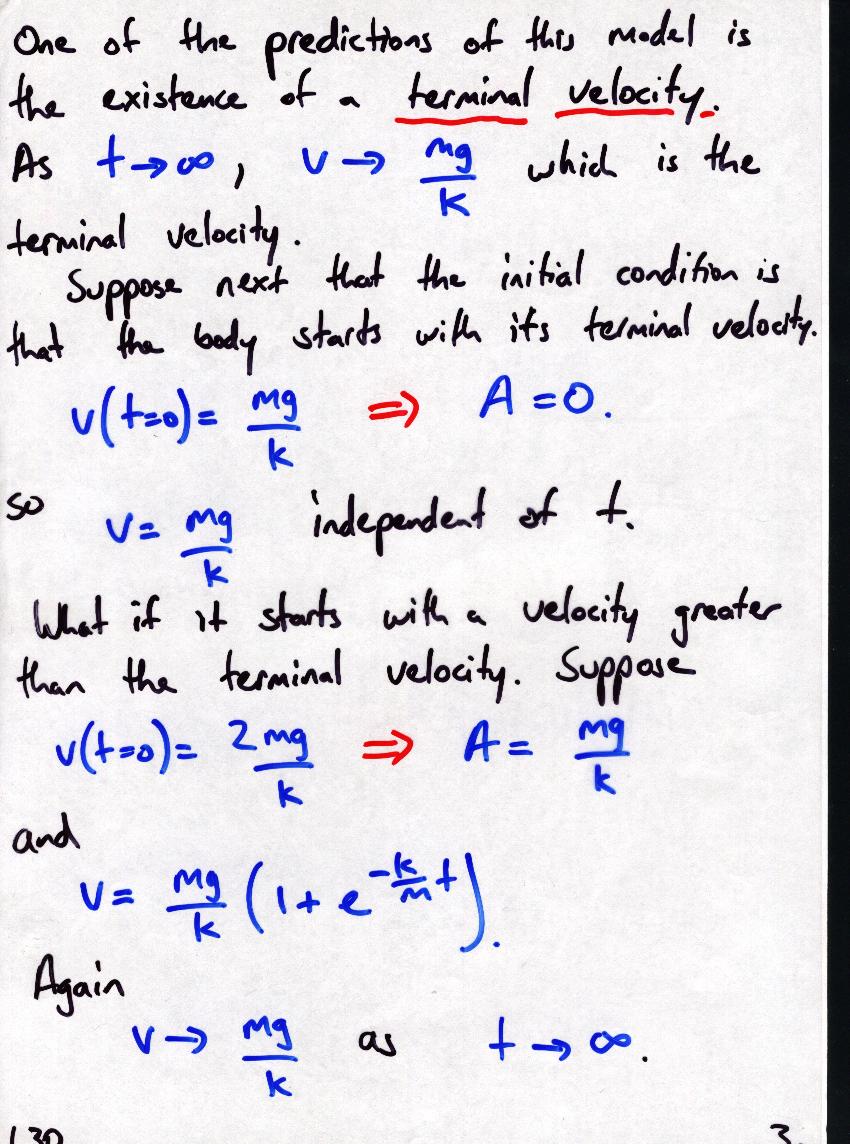 One of the predictions of this model is
the existence of a terminal velocity.
As t→∞, v→ mg/k which is the
terminal velocity.
Suppose next that the initial condition is
that the body starts with its terminal velocity.
v(t=0)= mg/k ⇒ A=0.
so v= mg/k independent of t.
What if it starts with a velocity greater
than the terminal velocity. Suppose
v(t=0)= 2mg/k ⇒ A= mg/k
and
v= mg/k (1+ e^(-k/m t)).
Again
v→ mg/k as t→∞.
3